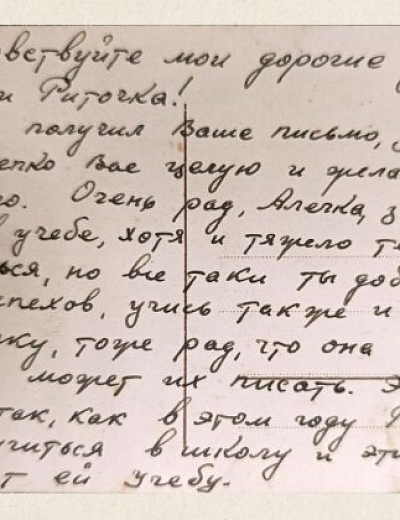 овствуйте мои дорогие
и Риточка!
получил Ваше письмо,
епко Вас целую и жела
го. Очень рад, Алечка, з
в учебе, хотя и тяжело т
ься, но все таки ты доб
спехов, учись также и
ку, тоже рад, что она
может их писать. Э
так, как в этом году
учиться в школу и эт
т ей учебу.